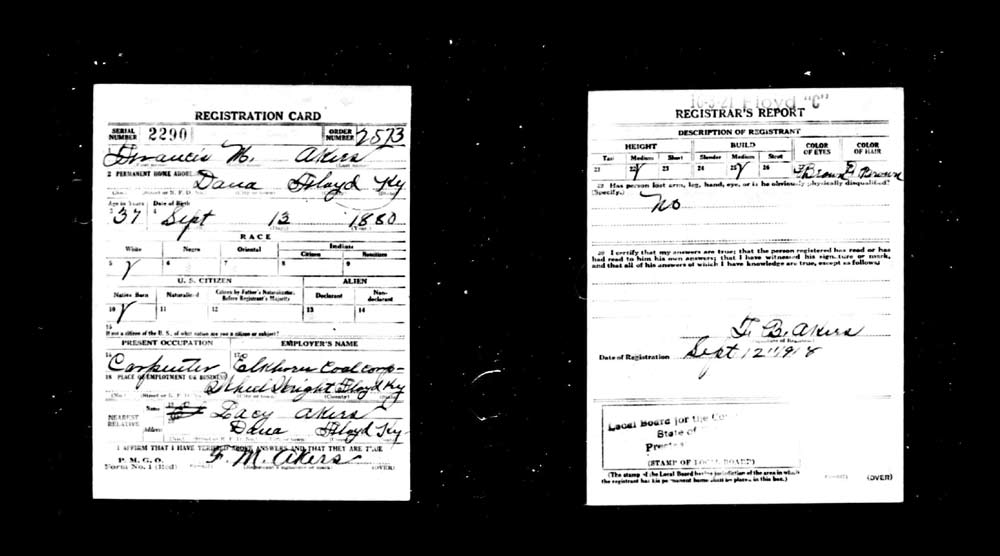 REGISTRATION CARD
SERIAL NUMBER 2290 ORDER NUMBER 2573
Francis M. Akers
2 PERMANENT HOME ADDRESS Dana Floyd Ky
Age in Years Date of Birth
37 Sept 13 1880
RACE
White Negro Oriental Indian
Citizen Noncitizen
5 6 7 8 9
U. S. CITIZEN ALIEN
Native Born Naturalized Citizen by Father's Naturalization Before Registrant's Majority Declarant Non-declarant
10 11 12 13 14
15
If not a citizen of the U. S., of what nation are you a citizen or subject?
PRESENT OCCUPATION EMPLOYER'S NAME
Carpenter Elkhorn Coal Corp-
18 PLACE OF EMPLOYMENT OR BUSINESS
Wright Floyd Ky
NEAREST RELATIVE Name Lacy Akers
Address Dana Floyd Ky-
I AFFIRM THAT I HAVE VERIFIED ABOVE ANSWERS AND THAT THEY ARE TRUE
P. M. G. O.
Form No. 1 (Red) F. M. Akers (OVER)
Floyd "C"
REGISTRAR'S REPORT
DESCRIPTION OF REGISTRANT
HEIGHT BUILD COLOR OF EYES COLOR OF HAIR
Tall Medium Short Slender Medium Stout
21 22 23 24 25 26 Brown Brown
29 Has person lost arm, leg, hand, eye, or is he obviously physically disqualified?
(Specify.)
No
30 I certify that my answers are true; that the person registered has read or has
had read to him his own answers; that I have witnessed his signature or mark,
and that all of his answers of which I have knowledge are true, except as follows:
Akers
Date of Registration Sept 12 1918
Local Board for the
State of
(STAMP OF LOCAL BOARD)
(The stamp of the Local Board having jurisdiction of the area in which
the registrant has his permanent home shall be placed in this box.)
(OVER)